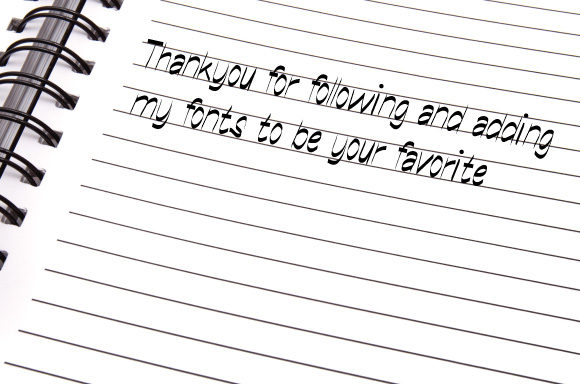 Thankyou for following and adding
my fonts to be your favorite